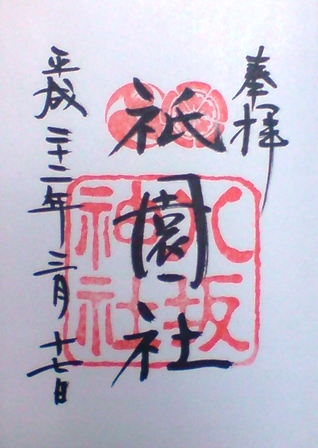 奉拝
祇園社
八坂神社
平成二十二年三月十七日